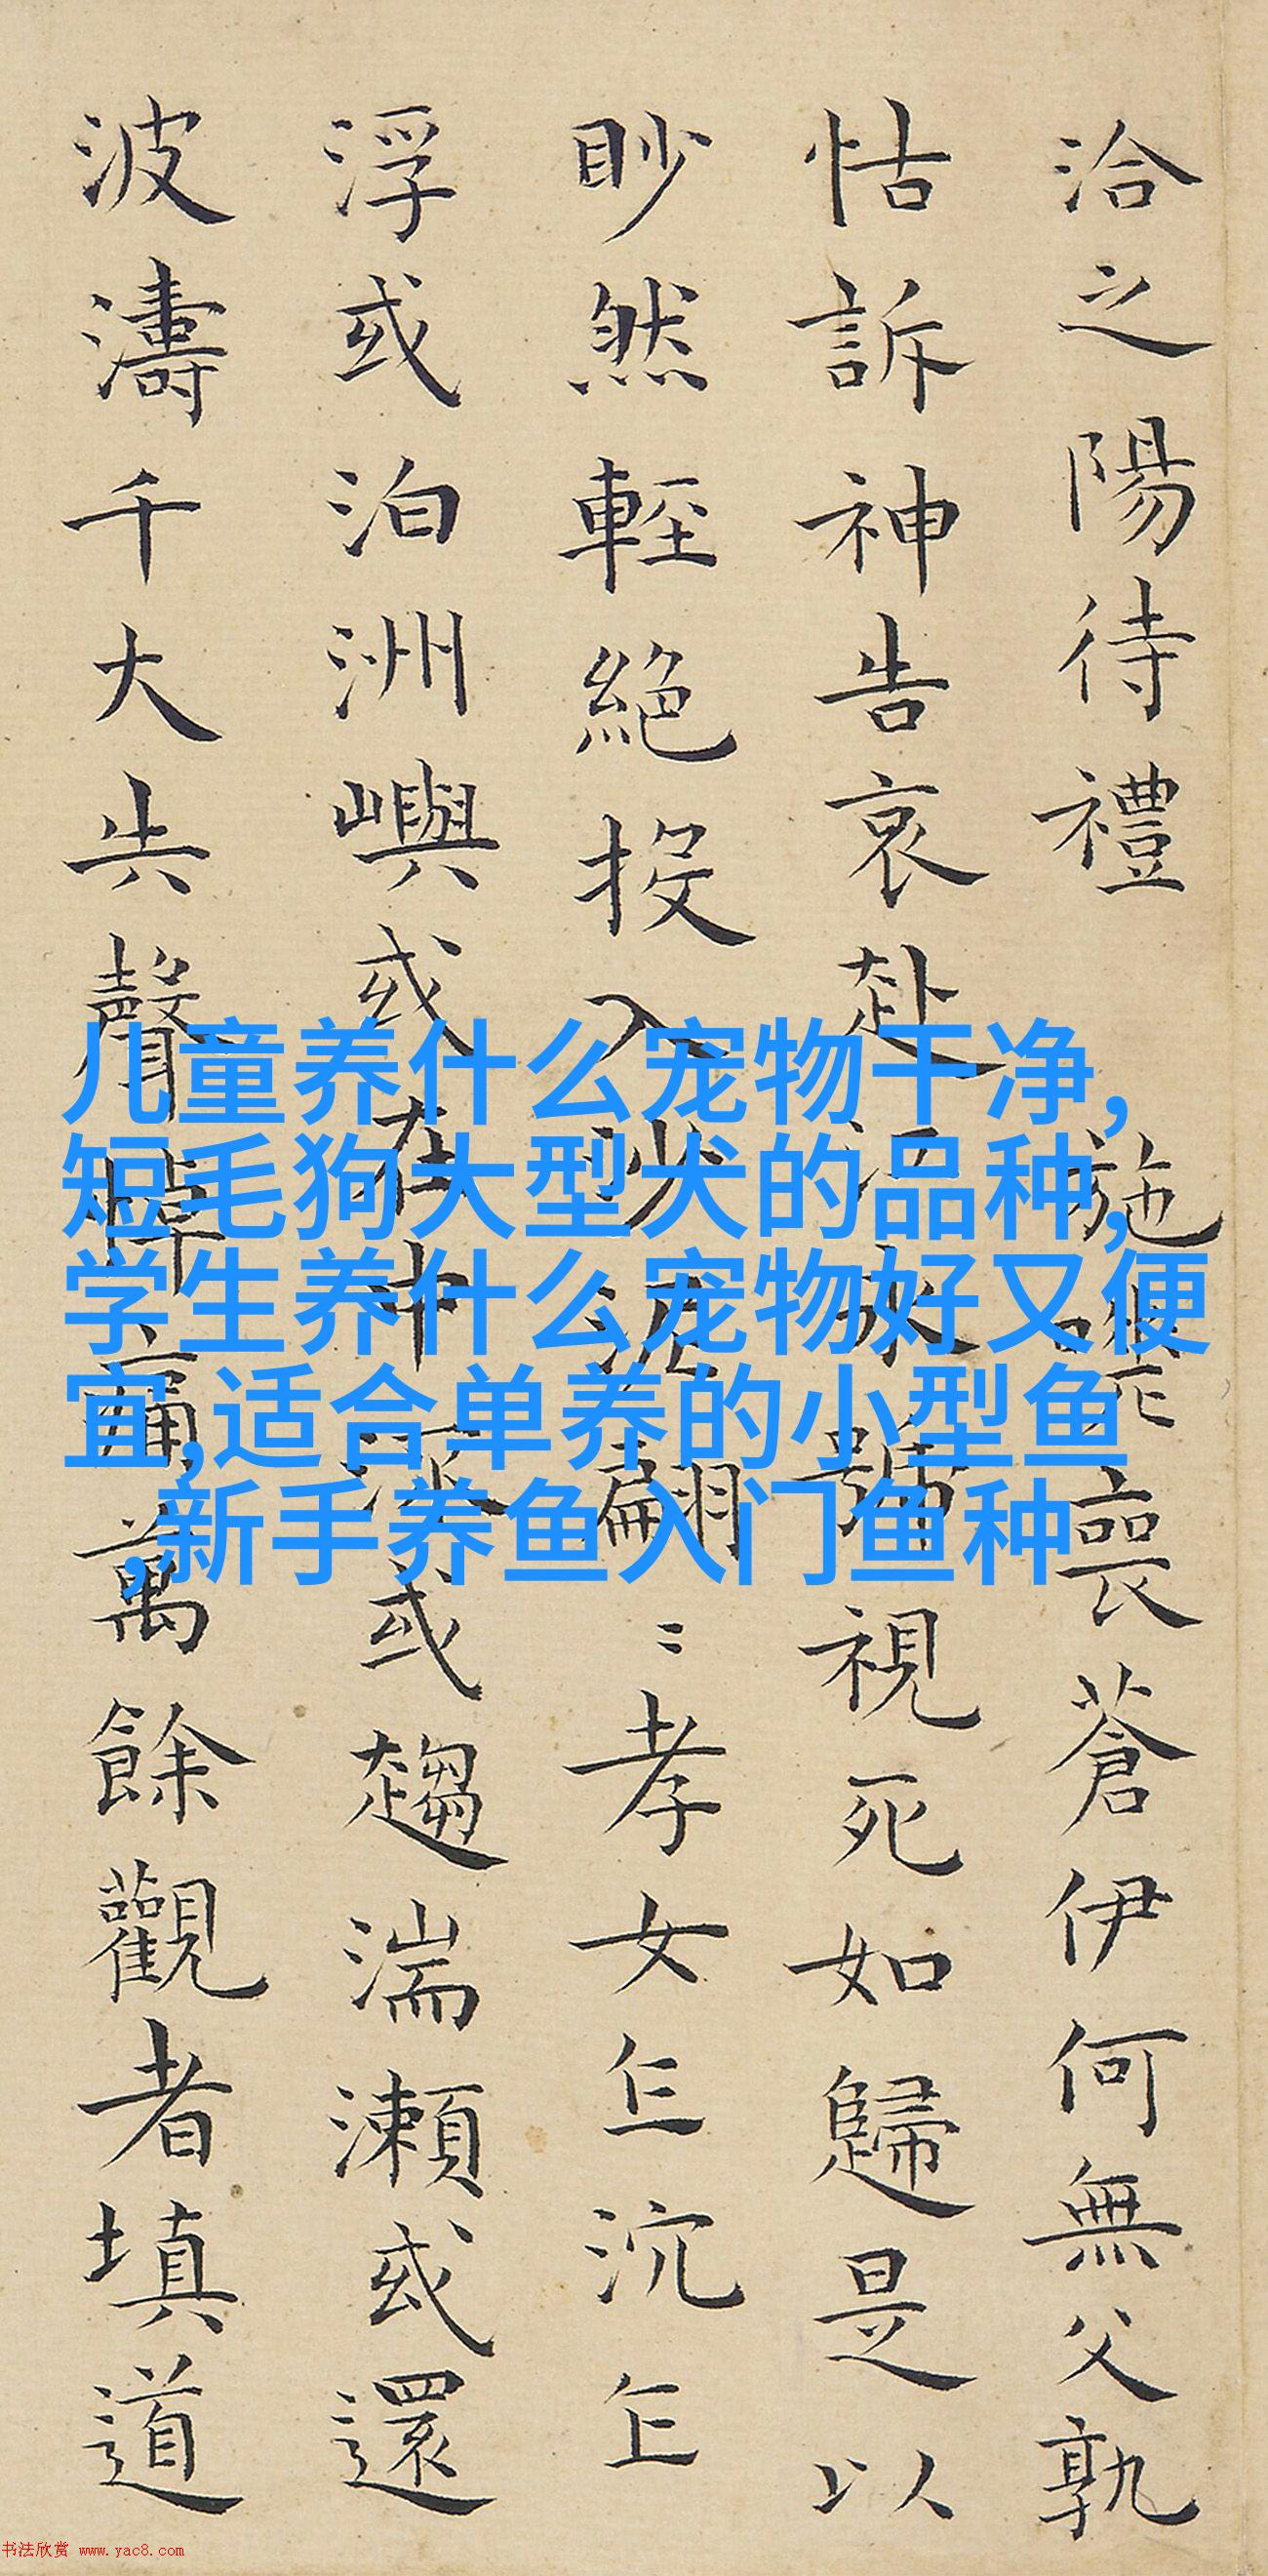 洽之陽待禮施喪蒼伊何無父孰
怙訴神告哀赴江永號視死如歸是以
眇然輕絕投入沙泥翩〻孝女乍沉乍
浮或泊洲嶼或在中流或趨湍瀨或還
波濤千大失聲悼痛萬餘觀者填道
儿童养什么宠物干净,
短毛狗大型犬的品种,
学生养什么宠物好又便
宜,适合单养的小型鱼
,新手养鱼入门鱼种
书法欣赏 www.yac8.com